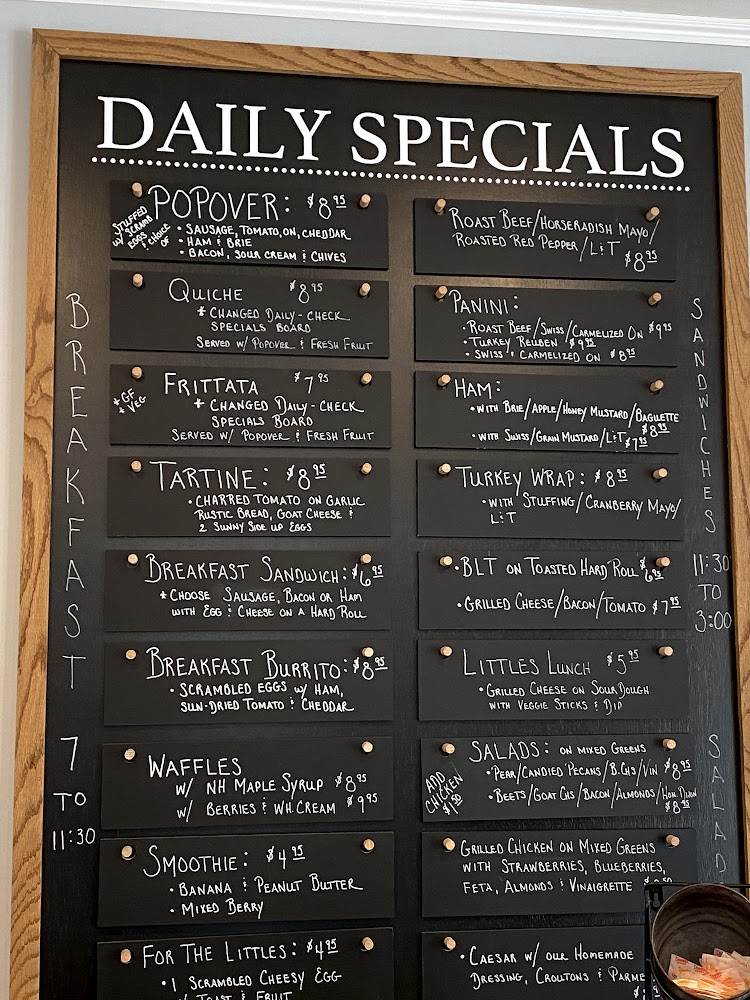 DAILY SPECIALS
BREAKFAST
7
TO
11:30
POPOVER: $8.95
STUFFED
W/ SCRAMB
EGGS
& CHOICE
OF
• SAUSAGE, TOMATO, ON, CHEDDAR
• HAM & BRIE
• BACON, SOUR CREAM & CHIVES
QUICHE $8.95
* CHANGED DAILY - CHECK
SPECIALS BOARD
SERVED W/ POPOVER & FRESH FRUIT
* GF
* VEG
FRITTATA $7.95
* CHANGED DAILY - CHECK
SPECIALS BOARD
SERVED W/ POPOVER & FRESH FRUIT
TARTINE: $8.95
• CHARRED TOMATO ON GARLIC
RUSTIC BREAD, GOAT CHEESE &
2 SUNNY SIDE UP EGGS
BREAKFAST SANDWICH: $6.95
* CHOOSE SAUSAGE, BACON OR HAM
WITH EGG & CHEESE ON A HARD ROLL
BREAKFAST BURRITO: $8.95
• SCRAMBLED EGGS W/ HAM,
SUN-DRIED TOMATO & CHEDDAR
WAFFLES
W/ NH MAPLE SYRUP $8.95
W/ BERRIES & WH. CREAM $9.95
SMOOTHIE: $4.95
• BANANA & PEANUT BUTTER
• MIXED BERRY
FOR THE LITTLES: $4.95
• 1 SCRAMBLED CHEESY EGG
W/ TOAST & FRUIT
SANDWICHES
11:30
TO
3:00
ROAST BEEF/HORSERADISH MAYO/
ROASTED RED PEPPER/L&T $8.95
PANINI:
• ROAST BEEF/SWISS/CARMELIZED ON $9.95
• TURKEY REUBEN $9.95
• SWISS & CARMELIZED ON $8.95
HAM:
• WITH BRIE/APPLE/HONEY MUSTARD/BAGUETTE $8.95
• WITH SWISS/GRAIN MUSTARD/L&T $7.95
TURKEY WRAP: $8.95
• WITH STUFFING/CRANBERRY MAYO/
L&T
• BLT ON TOASTED HARD ROLL $6.95
• GRILLED CHEESE/BACON/TOMATO $7.95
LITTLES LUNCH $5.95
• GRILLED CHEESE ON SOURDOUGH
WITH VEGGIE STICKS & DIP
SALAD
SALADS: ON MIXED GREENS
ADD
CHICKEN
$1.50
• PEAR/CANDIED PECANS/B.CHS/VIN $8.95
• BEETS/GOAT CHS/BACON/ALMONDS/HON. DIJON
$8.95
• GRILLED CHICKEN ON MIXED GREENS
WITH STRAWBERRIES, BLUEBERRIES,
FETA, ALMONDS & VINAIGRETTE
• CAESAR W/ OUR HOMEMADE
DRESSING, CROUTONS & PARME